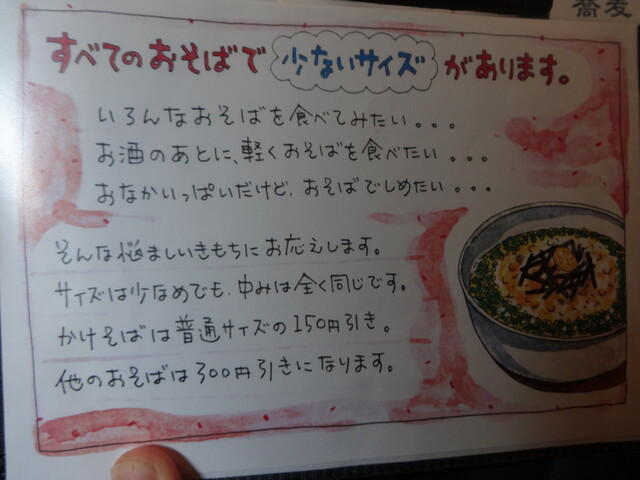 蕎麦
すべてのおそばで少ないサイズがあります。
いろんなおそばを食べてみたい。。。
お酒のあとに、軽くおそばを食べたい。。。
おなかいっぱいだけど、おそばでしめたい。。。
そんな悩ましいきもちにお応えします。
サイズは少なめでも、中みは全く同じです。
かけそばは普通サイズの150円引き。
他のおそばは300円引きになります。